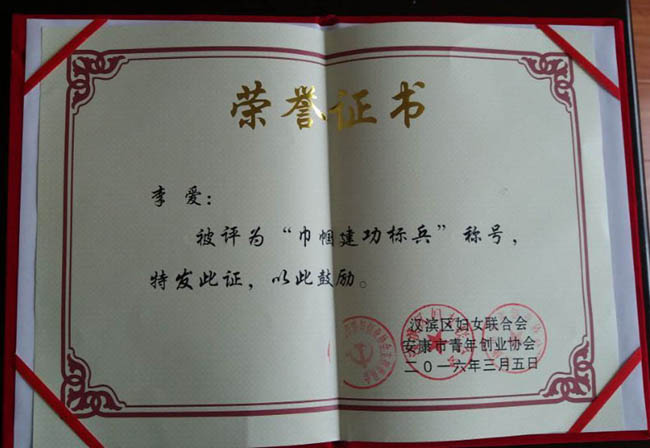 荣誉证书
李爱：
被评为“巾帼建功标兵”称号，
特发此证，以此鼓励。
汉滨区妇女联合会
安康市青年创业协会
二〇一六年三月五日